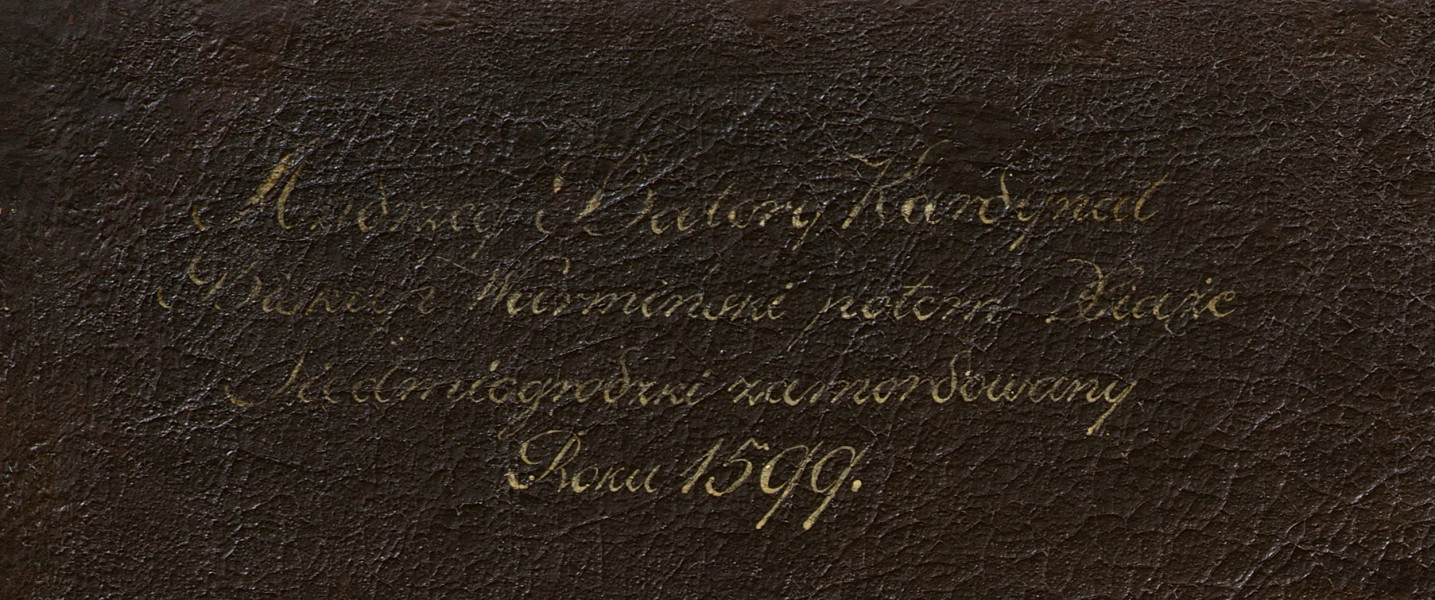 Andrzey Batory Kardynał
Biskup Warmiński potem Xiąże
Siedmiogrodzki zamordowany
Roku 1599.